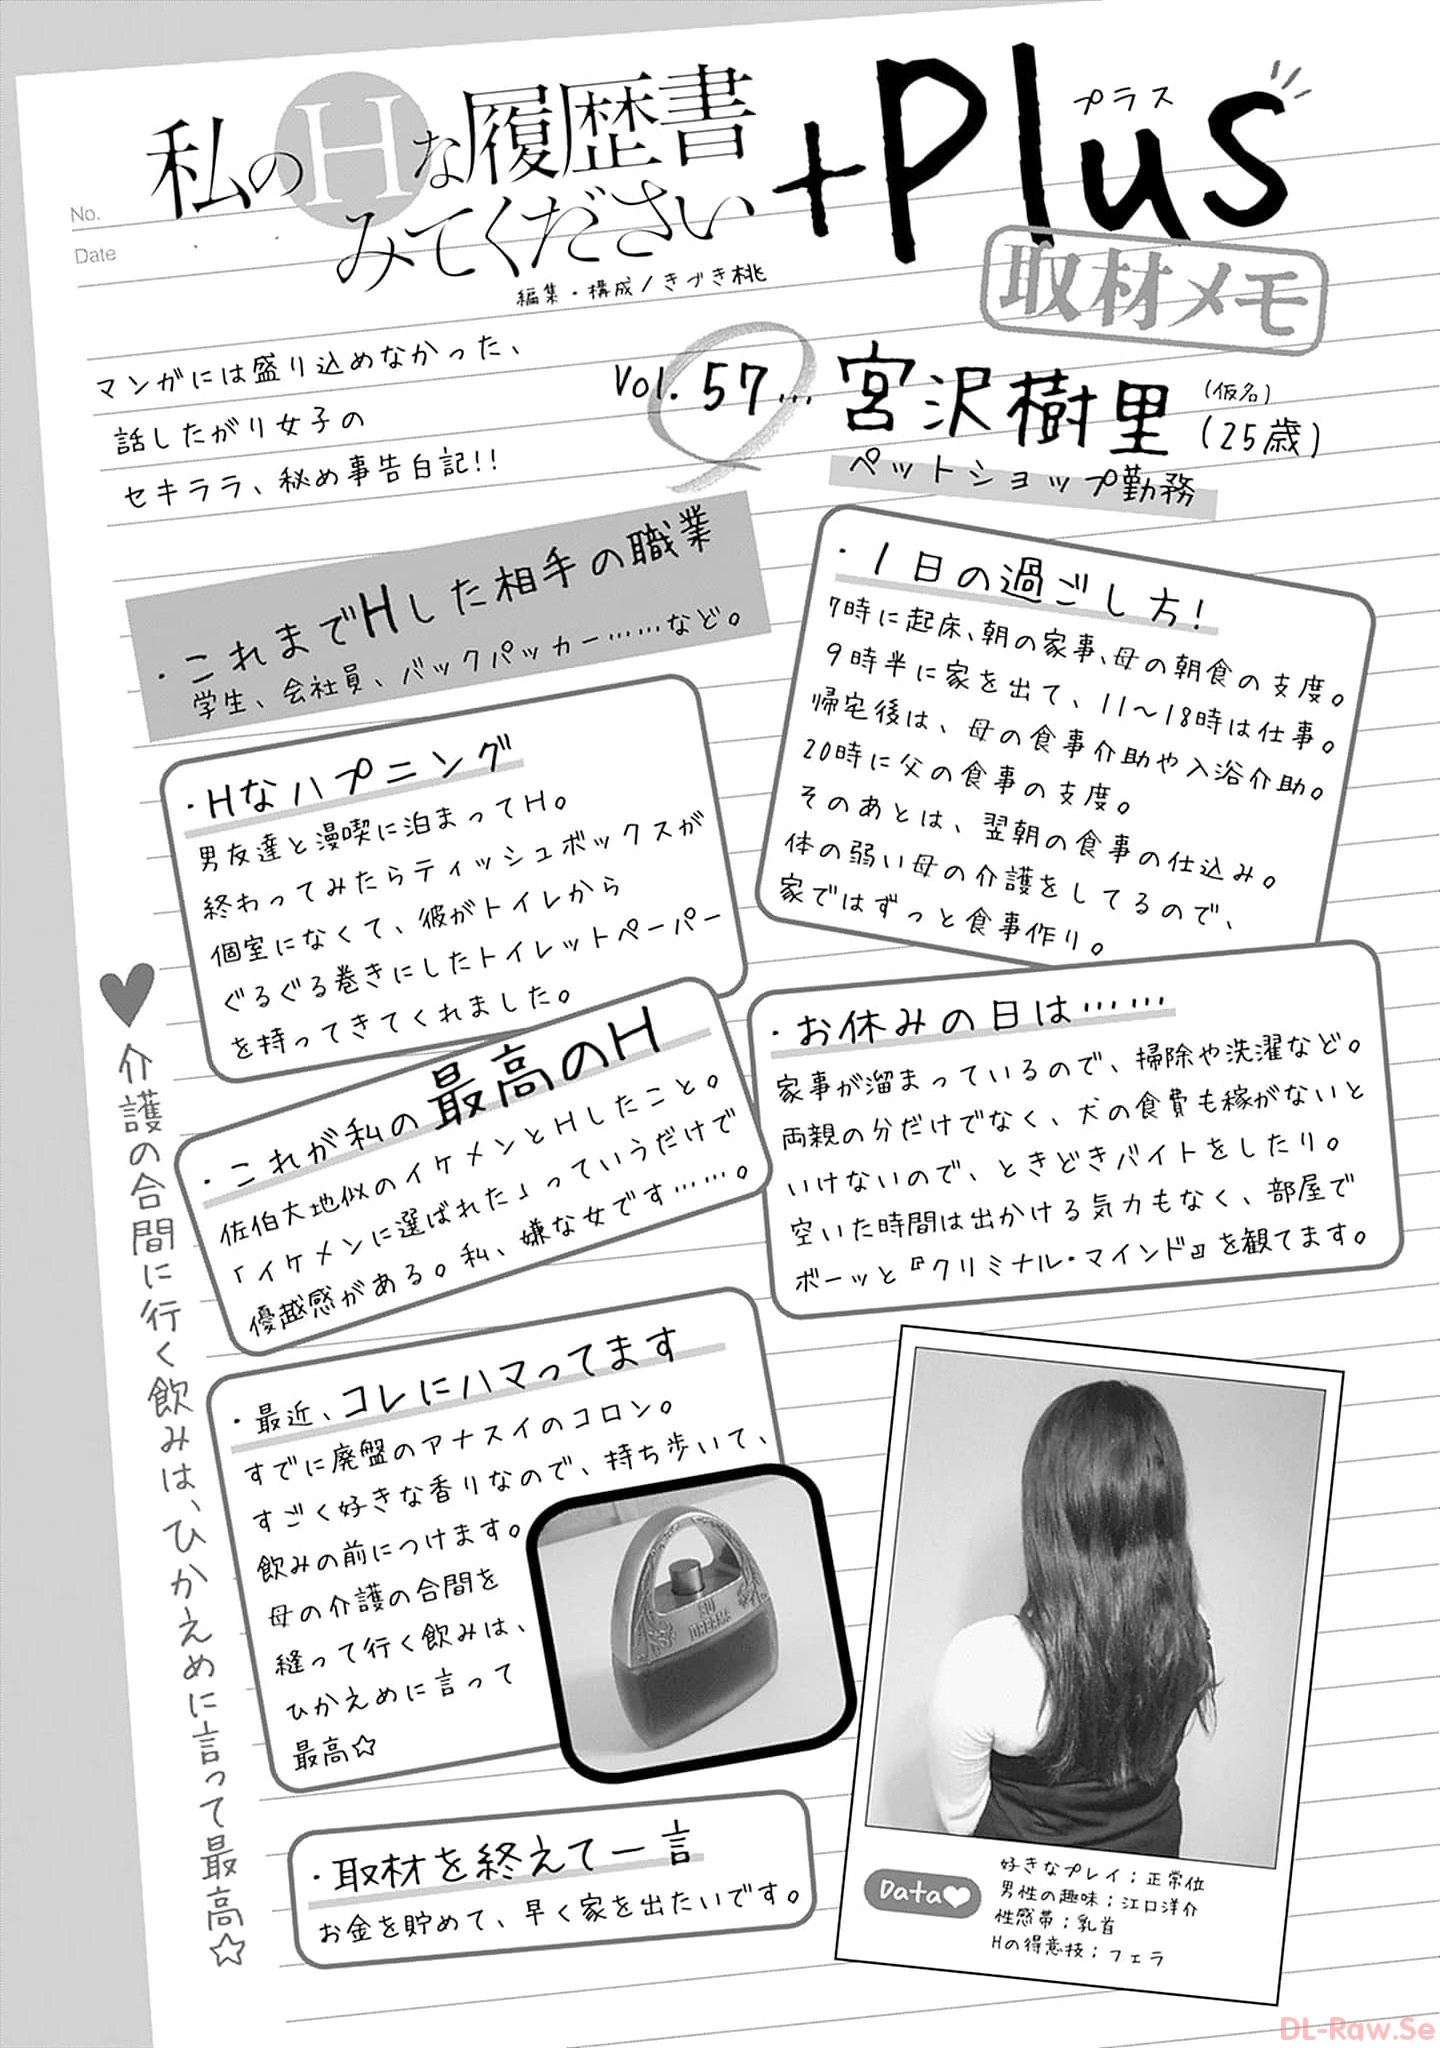 No.
Date
私のHな履歴書
みてください
+Plus
プラス
取材メモ
編集・構成/きづき桃
マンガには盛り込めなかった、
話したがり女子の
セキララ、秘め事告白記!!
Vol. 57…
宮沢樹里
(仮名)
(25歳)
ペットショップ勤務
・これまでHした相手の職業
学生、会社員、バックパッカー……など。
・1日の過ごし方!
7時に起床、朝の家事、母の朝食の支度。
9時半に家を出て、11〜18時は仕事。
帰宅後は、母の食事介助や入浴介助。
20時に父の食事の支度。
そのあとは、翌朝の食事の仕込み。
体の弱い母の介護をしてるので、
家ではずっと食事作り。
・Hなハプニング
男友達と漫喫に泊まってH。
終わってみたらティッシュボックスが
個室になくて、彼がトイレから
ぐるぐる巻きにしたトイレットペーパー
を持ってきてくれました。
・これが私の最高のH
佐伯大地似のイケメンとHしたこと。
「イケメンに選ばれた」っていうだけで
優越感がある。私、嫌な女です……。
・お休みの日は……
家事が溜まっているので、掃除や洗濯など。
両親の分だけでなく、犬の食費も稼がないと
いけないので、ときどきバイトをしたり。
空いた時間は出かける気力もなく、部屋で
ボーッと『クリミナル・マインド』を観てます。
・最近、コレにハマってます
すでに廃盤のアナスイのコロン。
すごく好きな香りなので、持ち歩いて、
飲みの前につけます。
母の介護の合間を
縫って行く飲みは、
ひかえめに言って
最高☆
SUI
DREAMS
♥介護の合間に行く飲みは、ひかえめに言って最高☆
・取材を終えて一言
お金を貯めて、早く家を出たいです。
Data♥
好きなプレイ;正常位
男性の趣味;江口洋介
性感帯;乳首
Hの得意技;フェラ
DL-Raw.Se